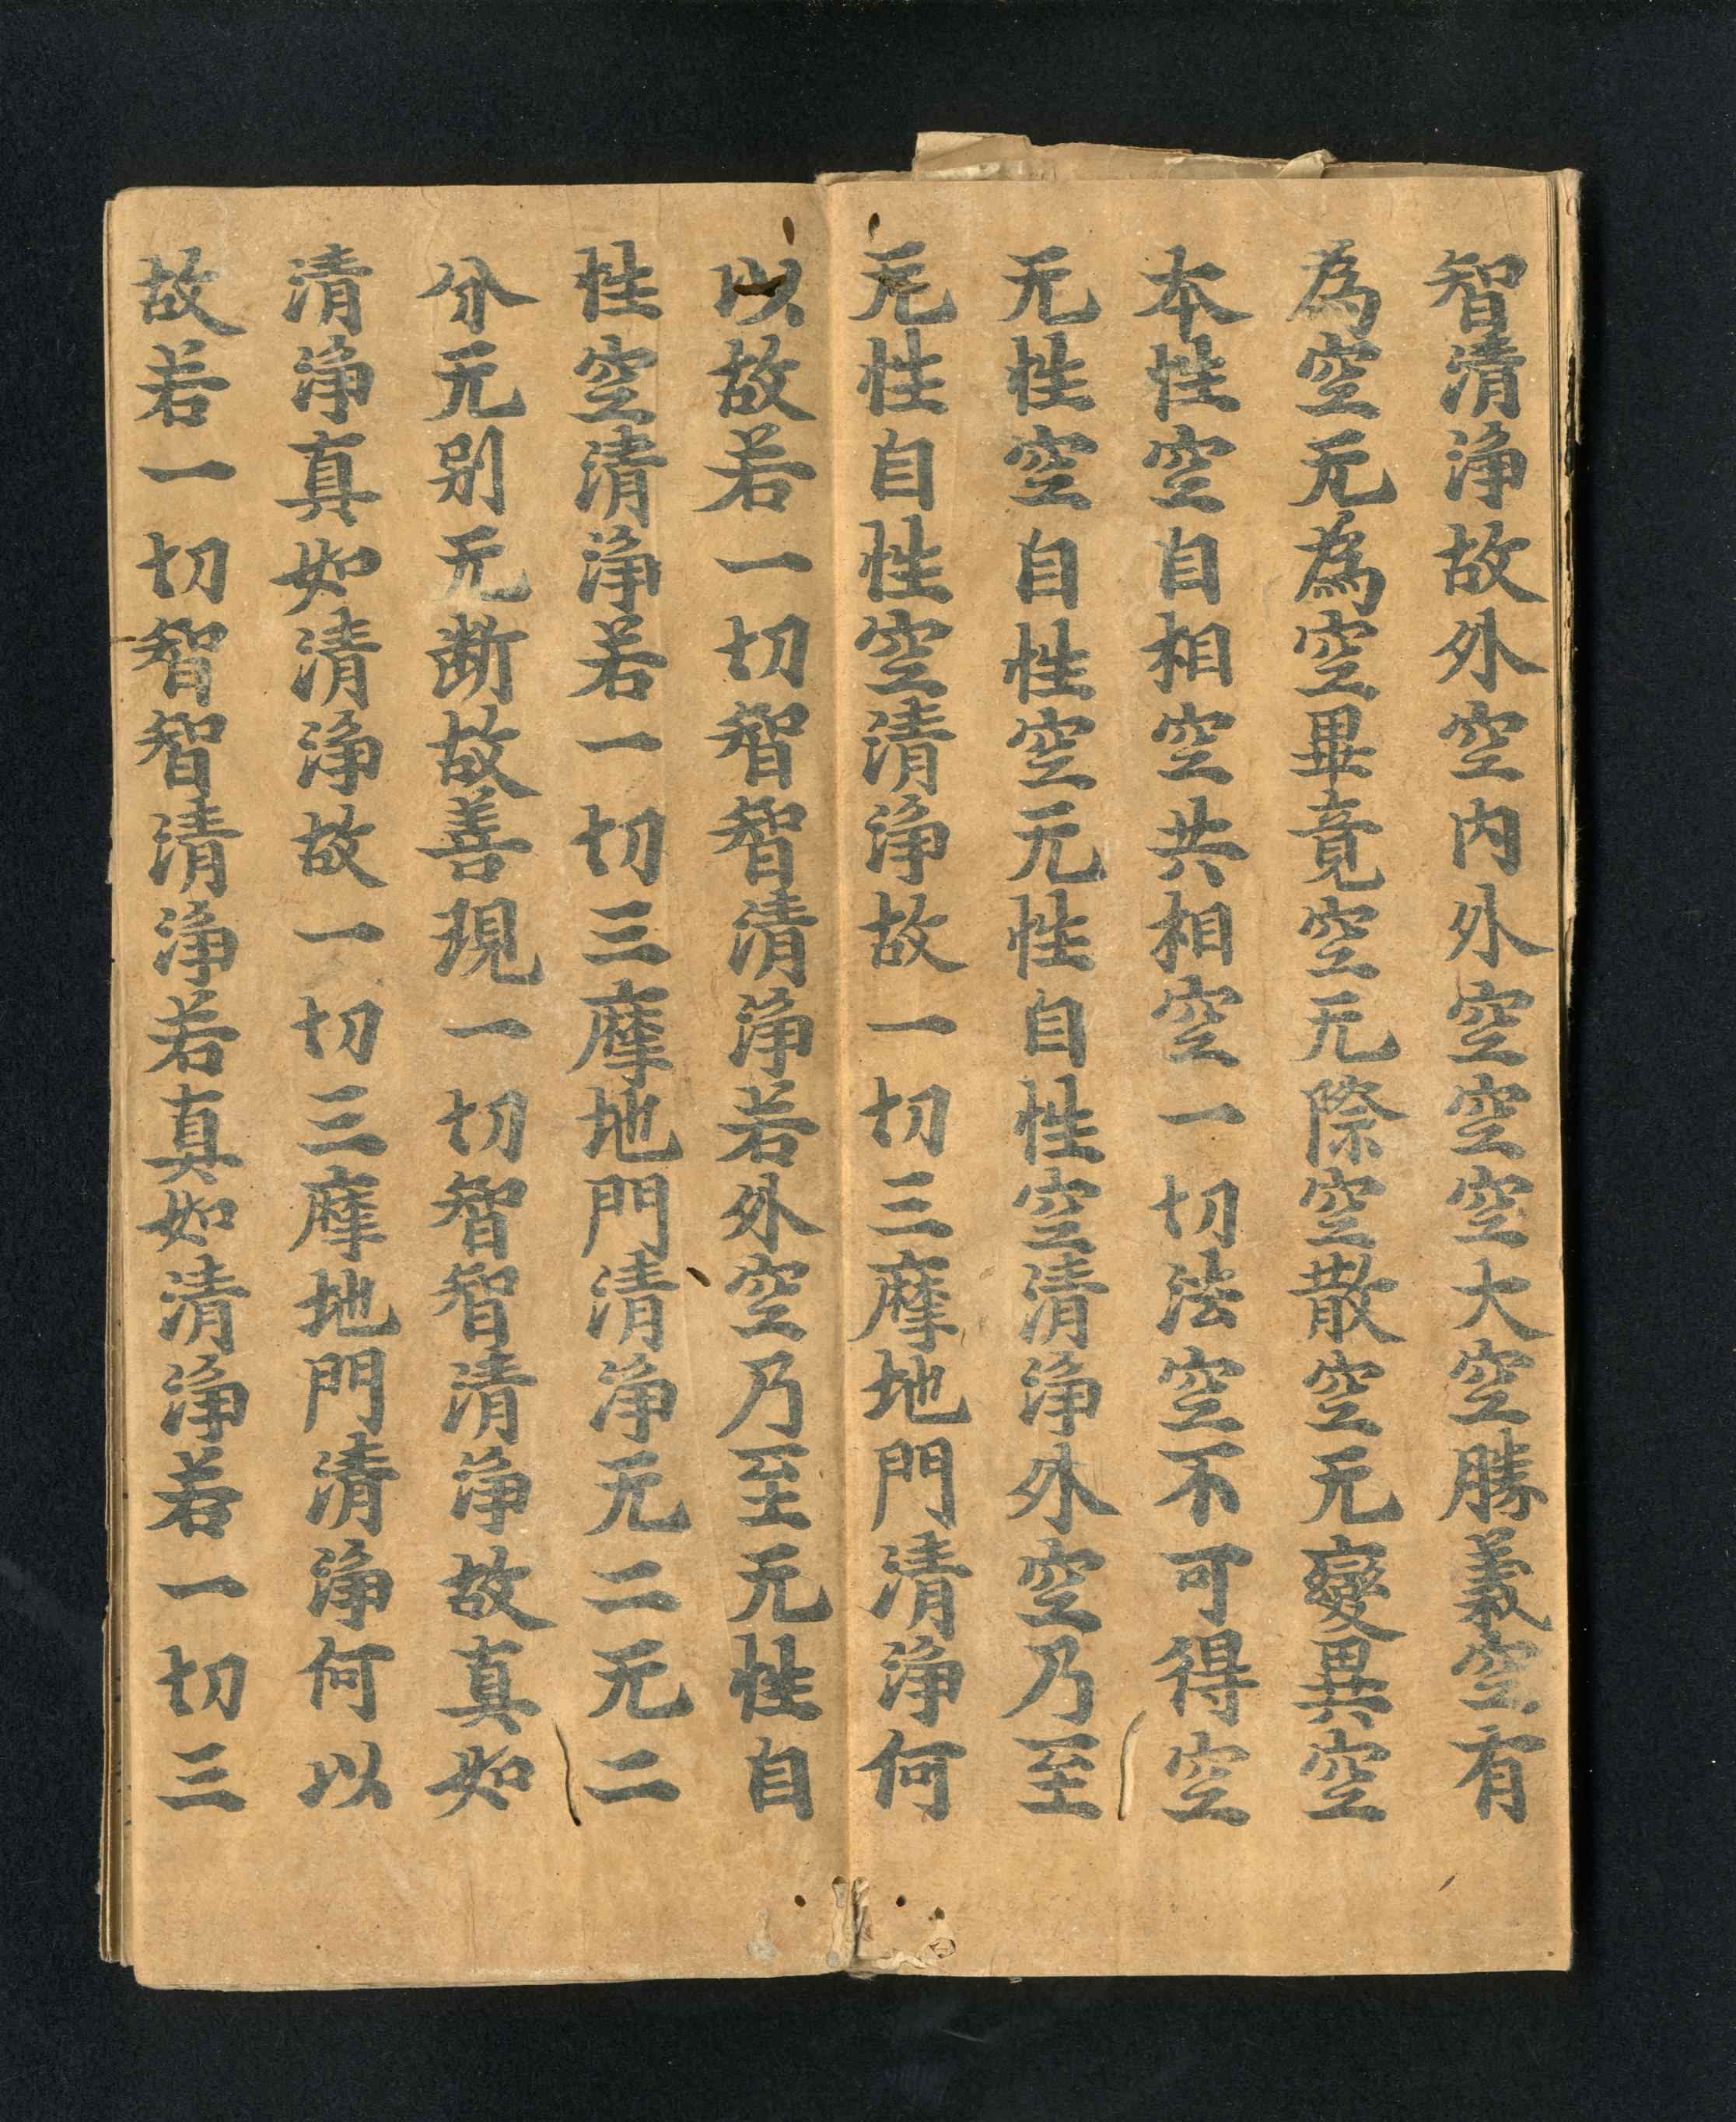 智清淨故外空內外空空空大空勝義空有
為空无為空畢竟空无際空散空无變異空
本性空自相空共相空一切法空不可得空
无性空自性空无性自性空清淨外空乃至
无性自性空清淨故一切三摩地門清淨何
以故若一切智智清淨若外空乃至无性自
性空清淨若一切三摩地門清淨无二无二
分无别无断故善現一切智智清淨故真如
清淨真如清淨故一切三摩地門清淨何以
故若一切智智清淨若真如清淨若一切三